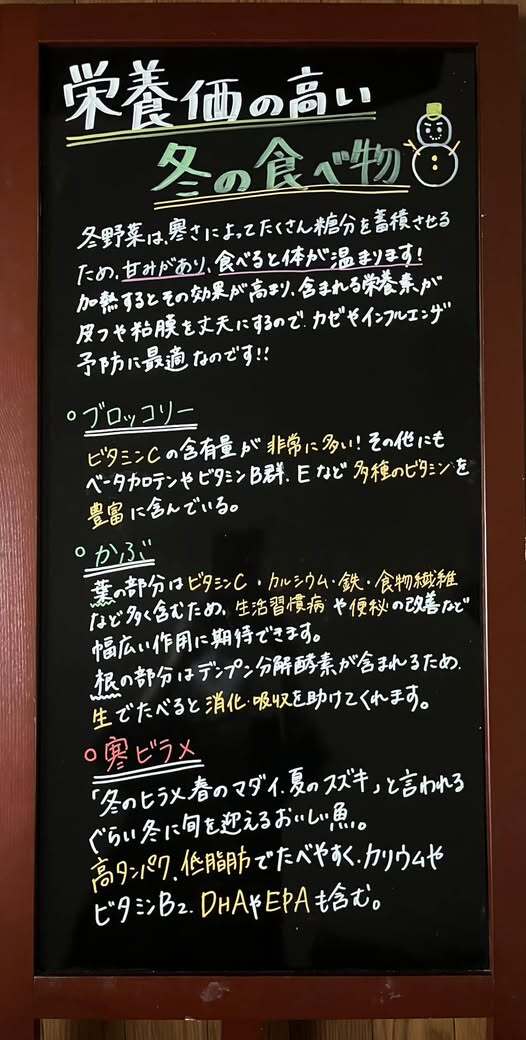 栄養価の高い
冬の食べ物
冬野菜は、寒さによってたくさん糖分を蓄積させる
ため、甘みがあり、食べると体が温まります！
加熱するとその効果が高まり、含まれる栄養素が
皮フや粘膜を丈夫にするので、カゼやインフルエンザ
予防に最適なのです！！
○ブロッコリー
ビタミンCの含有量が非常に多い！その他にも
ベータカロテンやビタミンB群、Eなど多種のビタミンを
豊富に含んでいる。
○かぶ
葉の部分はビタミンC・カルシウム・鉄・食物繊維
など多く含むため、生活習慣病や便秘の改善など
幅広い作用に期待できます。
根の部分はデンプン分解酵素が含まれるため、
生でたべると消化・吸収を助けてくれます。
○寒ビラメ
「冬のヒラメ、春のマダイ、夏のスズキ」と言われる
ぐらい冬に旬を迎えるおいしい魚。
高タンパク、低脂肪でたべやすく、カリウムや
ビタミンB2、DHAやEPAも含む。